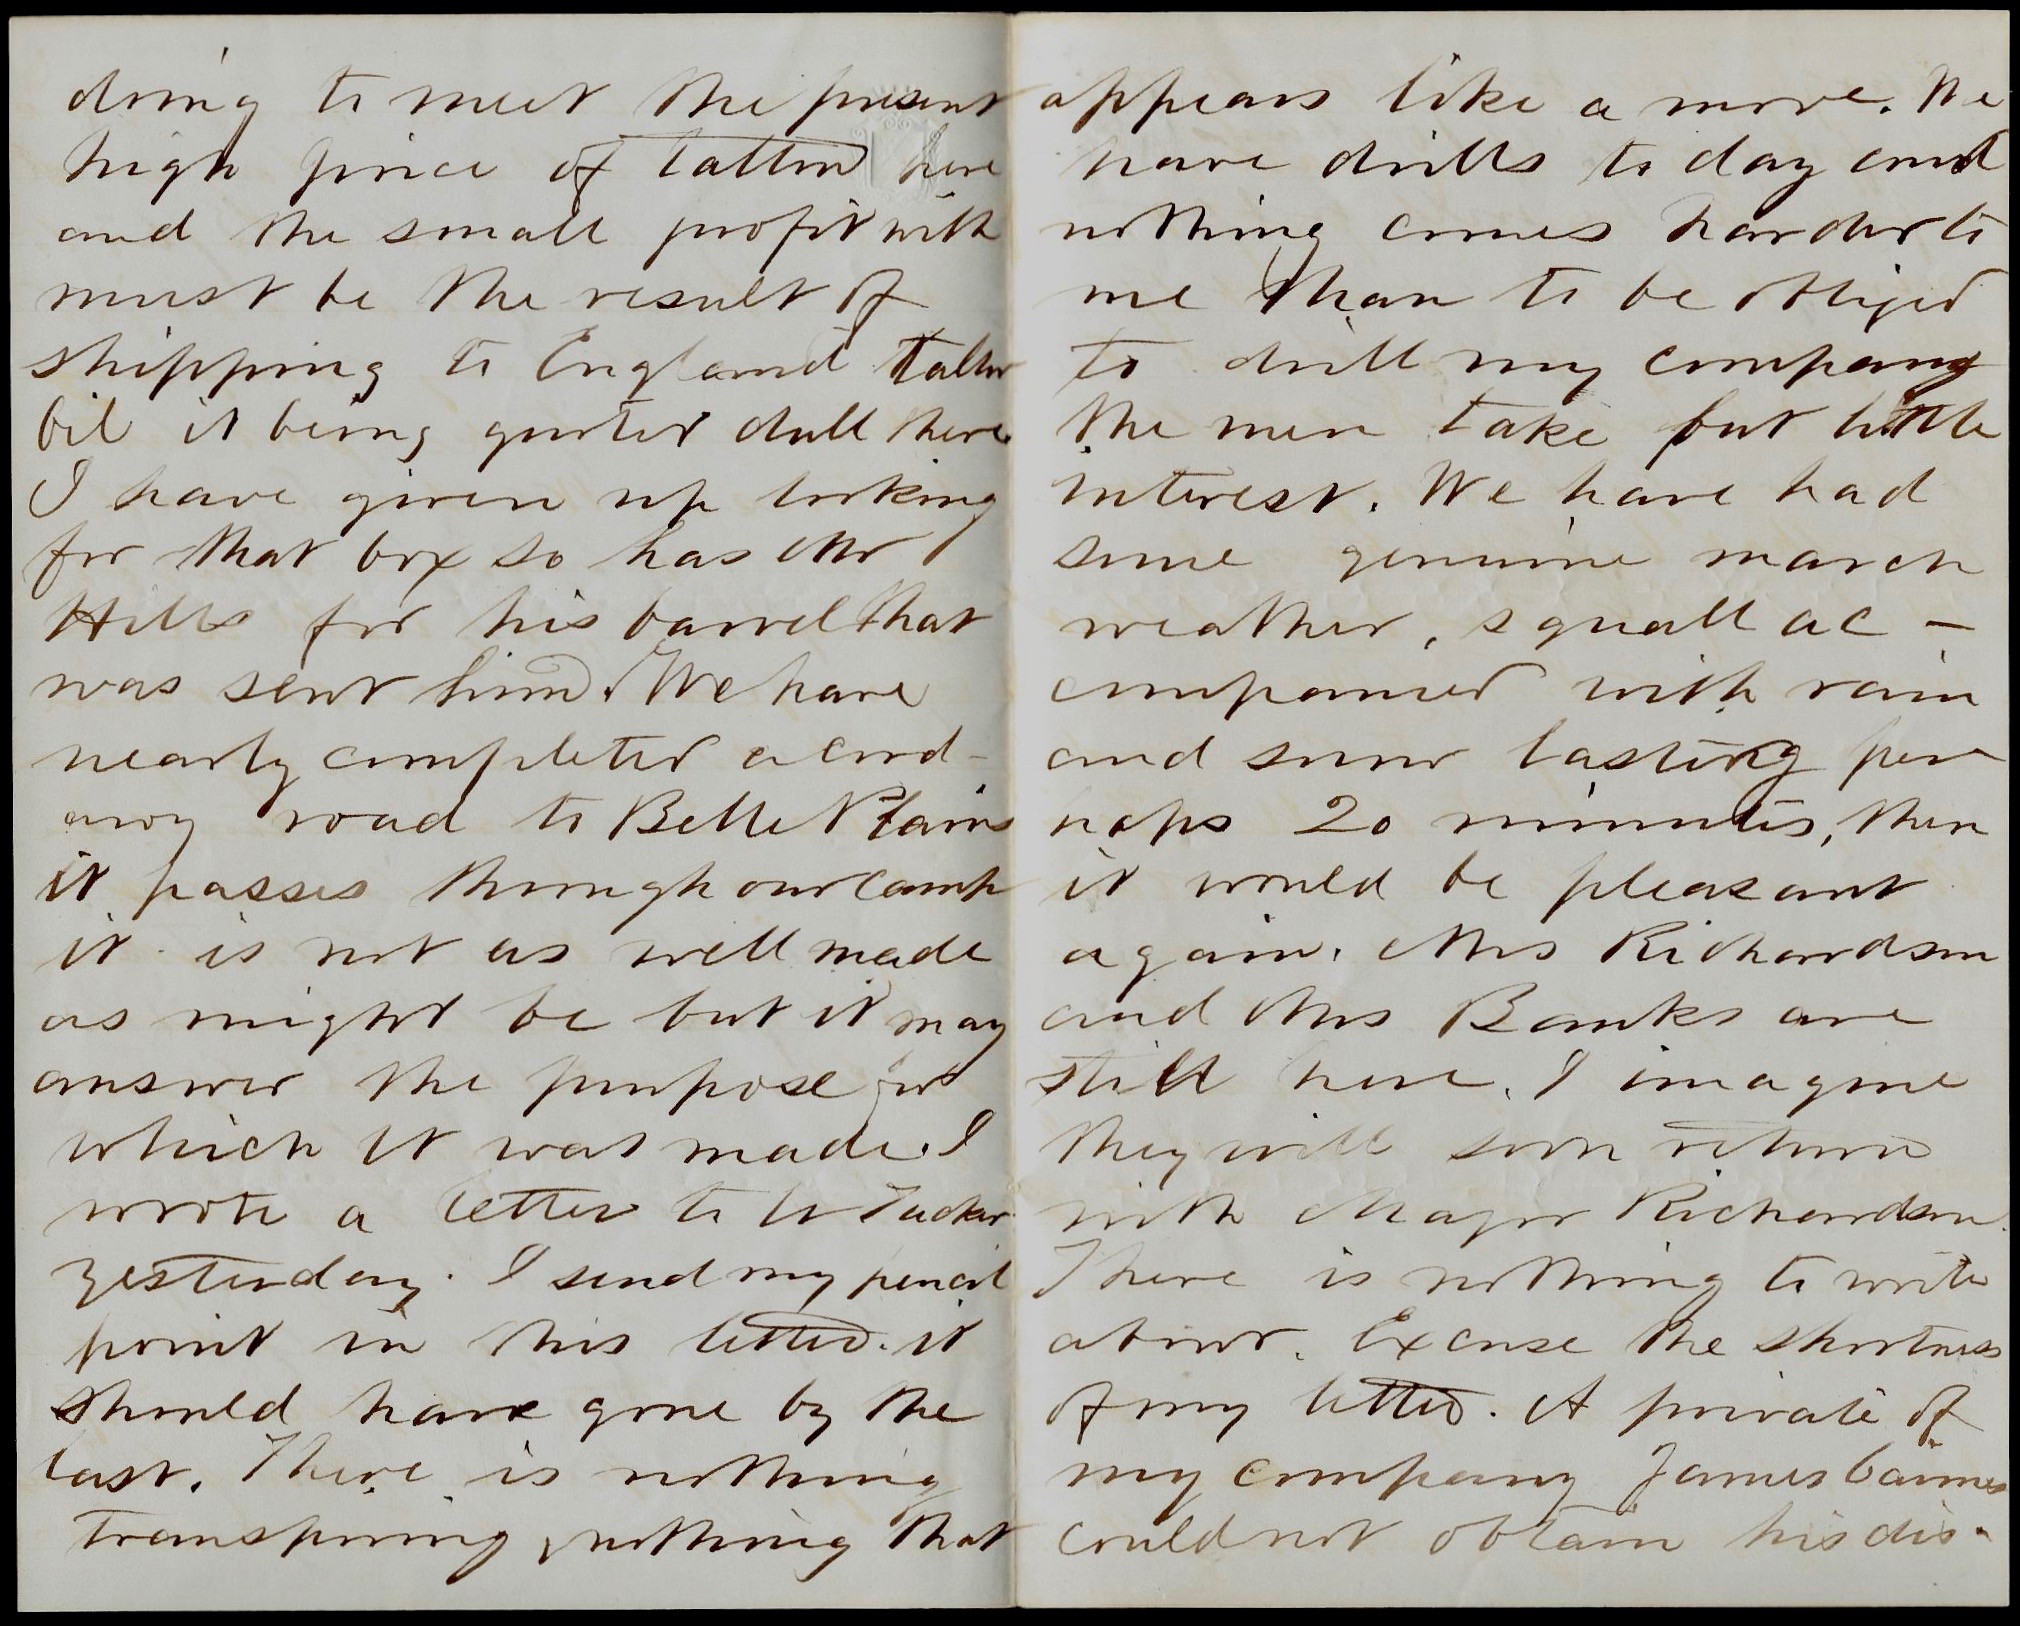 doing to meet the present
high price of tallow here
and the small profit with
must be the result of
shipping to England tallow
oil it being quoted dull there.
I have given up looking
for that box so has Mr
Hills for his barrel that
was sent him. We have
nearly completed a cord-
uroy road to Belle Plains
it passes through our camp
it is not as well made
as might be but it may
answer the purpose for
which it was made. I
wrote a letter to Tucker
yesterday. I send my pencil
point in this letter. it
should have gone by the
last. There is nothing
transpiring, nothing that
appears like a move. We
have drills to day and
nothing comes harder to
me than to be obliged
to drill my company
the men take but little
interest. We have had
some genuine march
weather, squall ac-
companied with rain
and snow lasting per
haps 20 minutes, then
it would be pleasant
again. Mrs Richardson
and Mrs Banks are
still here. I imagine
they will soon return
with Major Richardson.
There is nothing to write
about. Excuse the shortness
of my letter. A private of
my company James
could not obtain his dis-